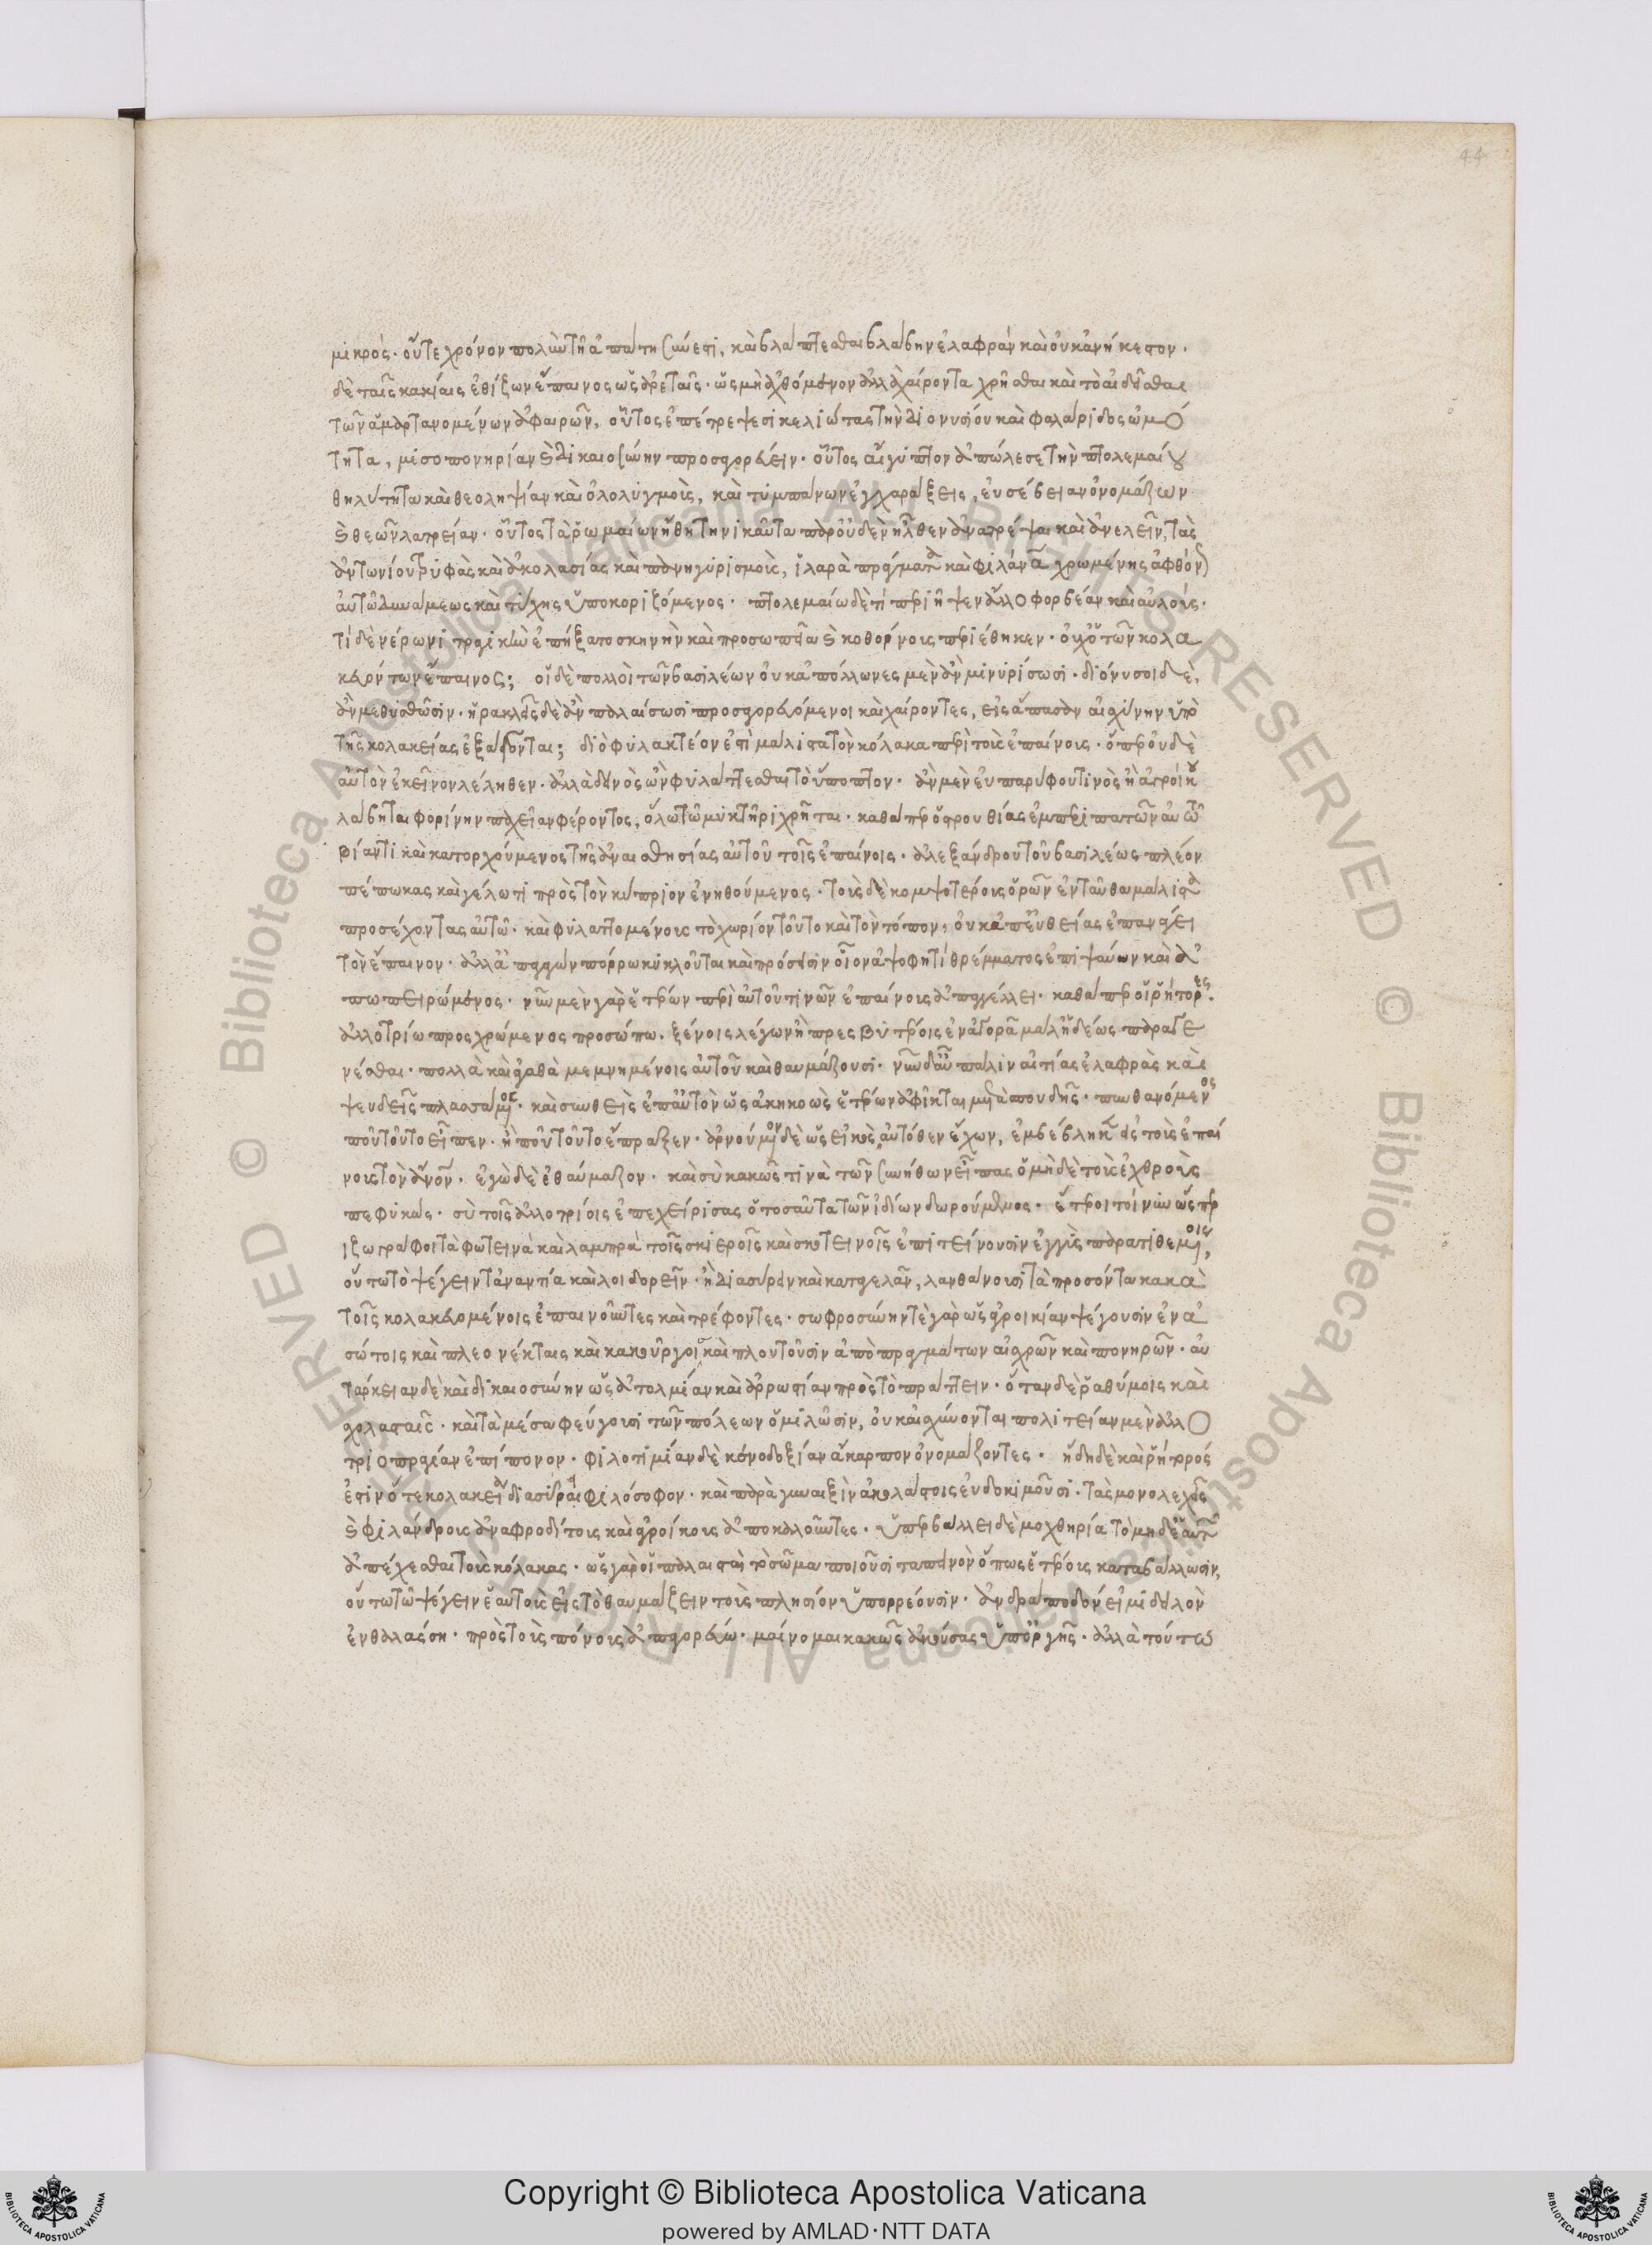 44
μικρός· οὔτε χρόνον πολὺν τῇ ἀπάτῃ σύνεστι, καὶ βλάπτεσθαι βλάβην ἐλαφρὰν καὶ οὐκ ἀνήκεστον·
δὲ ταῖς κακίαις ἐθίζων ἔπαινος ὡς ἀρεταῖς· ὡς μὴ ἀχθόμενον ἀλλὰ χαίροντα χρῆσθαι καὶ τὸ αἰδεῖσθαι
τῶν ἁμαρτανομένων ἀφαιρῶν, οὗτος ἐπέτρεψε σικελιώτας τὴν διονυσίου καὶ φαλάριδος ὠμό
τητα, μισοπονηρίαν καὶ δικαιοσύνην προσαγορεύειν· οὗτος αἴγυπτον ἀπώλεσε τὴν πτολεμαίου
θηλύτητα καὶ θεοληψίαν καὶ ὀλολυγμοὺς, καὶ τυμπάνων ἐγχαράξεις, εὐσέβειαν ὀνομάζων
καὶ θεῶν λατρείαν· οὗτος τὰ ῥωμαίων ἤθη τηνικαῦτα παρ' οὐδὲν ἦλθεν ἀνατρέψαι καὶ ἀνελεῖν, τὰς
ἀντωνίου τρυφὰς καὶ ἀκολασίας καὶ πανηγυρισμοὺς, ἱλαρὰ πράγματα καὶ φιλάνθρωπα χρωμένης ἀφθόνως
αὐτῶ δυνάμεως καὶ τύχης ὑποκοριζόμενος· πτολεμαίω δὲ τί περιῆψεν ἄλλο φορβέαν καὶ αὐλούς·
τί δὲ νέρωνι τραγικὴν ἐπήξατο σκηνὴν καὶ προσωπεῖα καὶ κοθόρνους περιέθηκεν· οὐχ ὁ τῶν κολα
κευόντων ἔπαινος; οἱ δὲ πολλοὶ τῶν βασιλέων οὐκ ἀπόλλωνες μὲν ἂν μινυρίσωσι· διόνυσοι δὲ,
ἂν μεθυσθῶσιν· ἡρακλεῖς δὲ ἂν παλαίσωσι προσαγορευόμενοι καὶ χαίροντες, εἰς ἅπασαν αἰσχύνην ὑπὸ
τῆς κολακείας ἐξάγονται; διὸ φυλακτέον ἐστὶ μάλιστα τὸν κόλακα περὶ τοὺς ἐπαίνους· ὅπερ οὐδὲ
αὐτὸν ἐκεῖνον λέληθεν· ἀλλὰ δεινὸς ὢν φυλάττεσθαι τὸ ὕποπτον· ἂν μὲν εὐπαρύφου τινὸς ἢ ἀγροίκου
λάβηται φορίνην παχεῖαν φέροντος, ὅλω τῶ μυκτῆρι χρῆται· καθάπερ ὁ στρουθίας ἐμπεριπατῶν αὐτῶ
βίαντι καὶ κατορχούμενος τῆς ἀναισθησίας αὐτοῦ τοῖς ἐπαίνοις· ἀλεξάνδρου τοῦ βασιλέως πλέον
πέπωκας καὶ γέλωτι πρὸς τὸν κύπριον ἐνηθούμενος· τοὺς δὲ κομψοτέρους ὁρῶν ἐνταῦθα μάλιστα
προσέχοντας αὐτῶ· καὶ φυλαττομένους τὸ χωρίον τοῦτο καὶ τὸν τόπον, οὐκ ἀπ' εὐθείας ἐπαγάγει
τὸν ἔπαινον· ἀλλ' ἀπαγαγὼν πόρρω κυκλοῦται καὶ πρόσεισιν οἷον ἀψοφητὶ θρέμματος ἐπιψαύων καὶ ἀ
ποπειρώμενος· νῦν μὲν γὰρ ἑτέρων περὶ αὐτοῦ τινῶν ἐπαίνους ἀπαγγέλλει· καθάπερ οἱ ῥήτορες·
ἀλλοτρίω προσχρώμενος προσώπω· ξένοις λέγων ἢ πρεσβυτέροις ἐν ἀγορᾶ μάλ' ἡδέως παραγε
νέσθαι· πολλὰ καὶ ἀγαθὰ μεμνημένοις αὐτοῦ καὶ θαυμάζουσι· νῦν δ' αὖ πάλιν αἰτίας ἐλαφρὰς καὶ
ψευδεῖς πλασάμενος· καὶ συνθεὶς ἐπ' αὐτὸν ὡς ἀκηκοὼς ἑτέρων ἀφῖκται μετὰ σπουδῆς· πυνθανόμενος
ποῦ τοῦτο εἶπεν· ἢ ποῦ τοῦτο ἔπραξεν· ἀρνουμένου δὲ ὡς εἰκὸς, αὐτόθεν ἔχων, ἐμβέβληκεν εἰς τοὺς ἐπαί
νους τὸν ἄνον· ἐγὼ δὲ ἐθαύμαζον· καὶ σὺ κακῶς τινὰ τῶν συνήθων εἶπας ὁ μηδὲ τοὺς ἐχθροὺς
πεφυκὼς· σὺ τοῖς ἀλλοτρίοις ἐπεχείρησας ὁ τοσαῦτα τῶν ἰδίων δωρούμενος· ἕτεροι τοίνυν ὥσπερ
ἱ ζωγράφοι τὰ φωτεινὰ καὶ λαμπρὰ τοῖς σκιεροῖς καὶ σκοτεινοῖς ἐπιτείνουσιν ἐγγὺς παρατιθεμένοις,
οὕτω τὸ ψέγειν τἀναντία καὶ λοιδορεῖν· ἢ διασύρειν καὶ καταγελᾶν, λανθάνουσι τὰ προσόντα κακὰ
τοῖς κολακευομένοις ἐπαινοῦντες καὶ τρέφοντες· σωφροσύνην τε γὰρ ὡς ἀγροικίαν ψέγουσιν ἐν ἀ
σώτοις καὶ πλεονέκταις καὶ κακούργοις καὶ πλουτοῦσιν ἀπὸ πραγμάτων αἰσχρῶν καὶ πονηρῶν· αὐ
τάρκειαν δὲ καὶ δικαιοσύνην ὡς ἀτολμίαν καὶ ἀρρωστίαν πρὸς τὸ πράττειν· ὅταν δὲ ῥαθύμοις καὶ
σχολασταῖς· καὶ τὰ μέσα φεύγουσι τῶν πόλεων ὁμιλῶσιν, οὐκ αἰσχύνονται πολιτείαν μὲν ἀλλο
τριοπραγίαν ἐπίπονον· φιλοτιμίαν δὲ κενοδοξίαν ἄκαρπον ὀνομάζοντες· ἤδη δὲ καὶ ῥήτορος
ἐστιν ὅτε κολακεία διασῦραι φιλόσοφον· καὶ παρὰ γυναιξὶν ἀκολάστοις εὐδοκιμοῦσι· τὰς μονολεχεῖς
καὶ φιλάνδρους ἀναφροδίτους καὶ ἀγροίκους ἀποκαλοῦντες· ὑπερβάλλει δὲ μοχθηρία τὸ μηδὲ ἑαυτῶν
ἀπέχεσθαι τοὺς κόλακας· ὡς γὰρ οἱ παλαισταὶ τὸ σῶμα ποιοῦσι ταπεινὸν ὅπως ἑτέρους καταβάλλωσιν,
οὕτω τῶ ψέγειν ἑαυτοὺς εἰς τὸ θαυμάζειν τοὺς πλησίον ὑπορρέουσιν· ἀνδράποδόν εἰμι δειλὸν
ἐν θαλάσση· πρὸς τοὺς πόνους ἀπαγορεύω· μαίνομαι κακῶς ἀκούσας ὑπ' ὀργῆς· ἀλλὰ τούτω
Copyright © Biblioteca Apostolica Vaticana
powered by AMLAD·NTT DATA